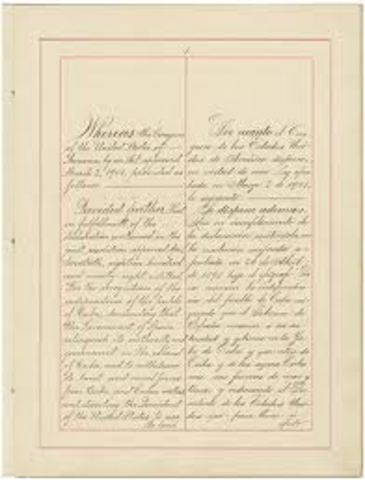 Whereas the Congress
of the United States of
America, by an Act approved
March 2, 1901, provided as
follows:
Provided further, That
in fulfillment of the
declaration contained in the
joint resolution approved April
twentieth, eighteen hundred
and ninety-eight, entitled,
"For the recognition of the
independence of the people
of Cuba, demanding that
the Government of Spain
relinquish its authority and
government in the island
of Cuba, and to withdraw
its land and naval forces
from Cuba and Cuban waters,
and directing the President
of the United States to use
the land
Por cuanto el Con
greso de los Estados Uni
dos de América dispuso,
en virtud de una Ley apro
bada en Marzo 2 de 1901,
lo siguiente:
Se dispone además,
Que en cumplimiento de
la declaración contenida en
la resolución conjunta a
probada en 20 de Abril
de 1898
la independen
cia del pueblo de Cuba
que el Gobierno de
España renuncie a su au
toridad y gobierno en la Is
la de Cuba y que retire de
Cuba y de las aguas Cuba
nas sus fuerzas de mar y
tierra y ordenando al Pre
sidente de los Estados Uni
dos que